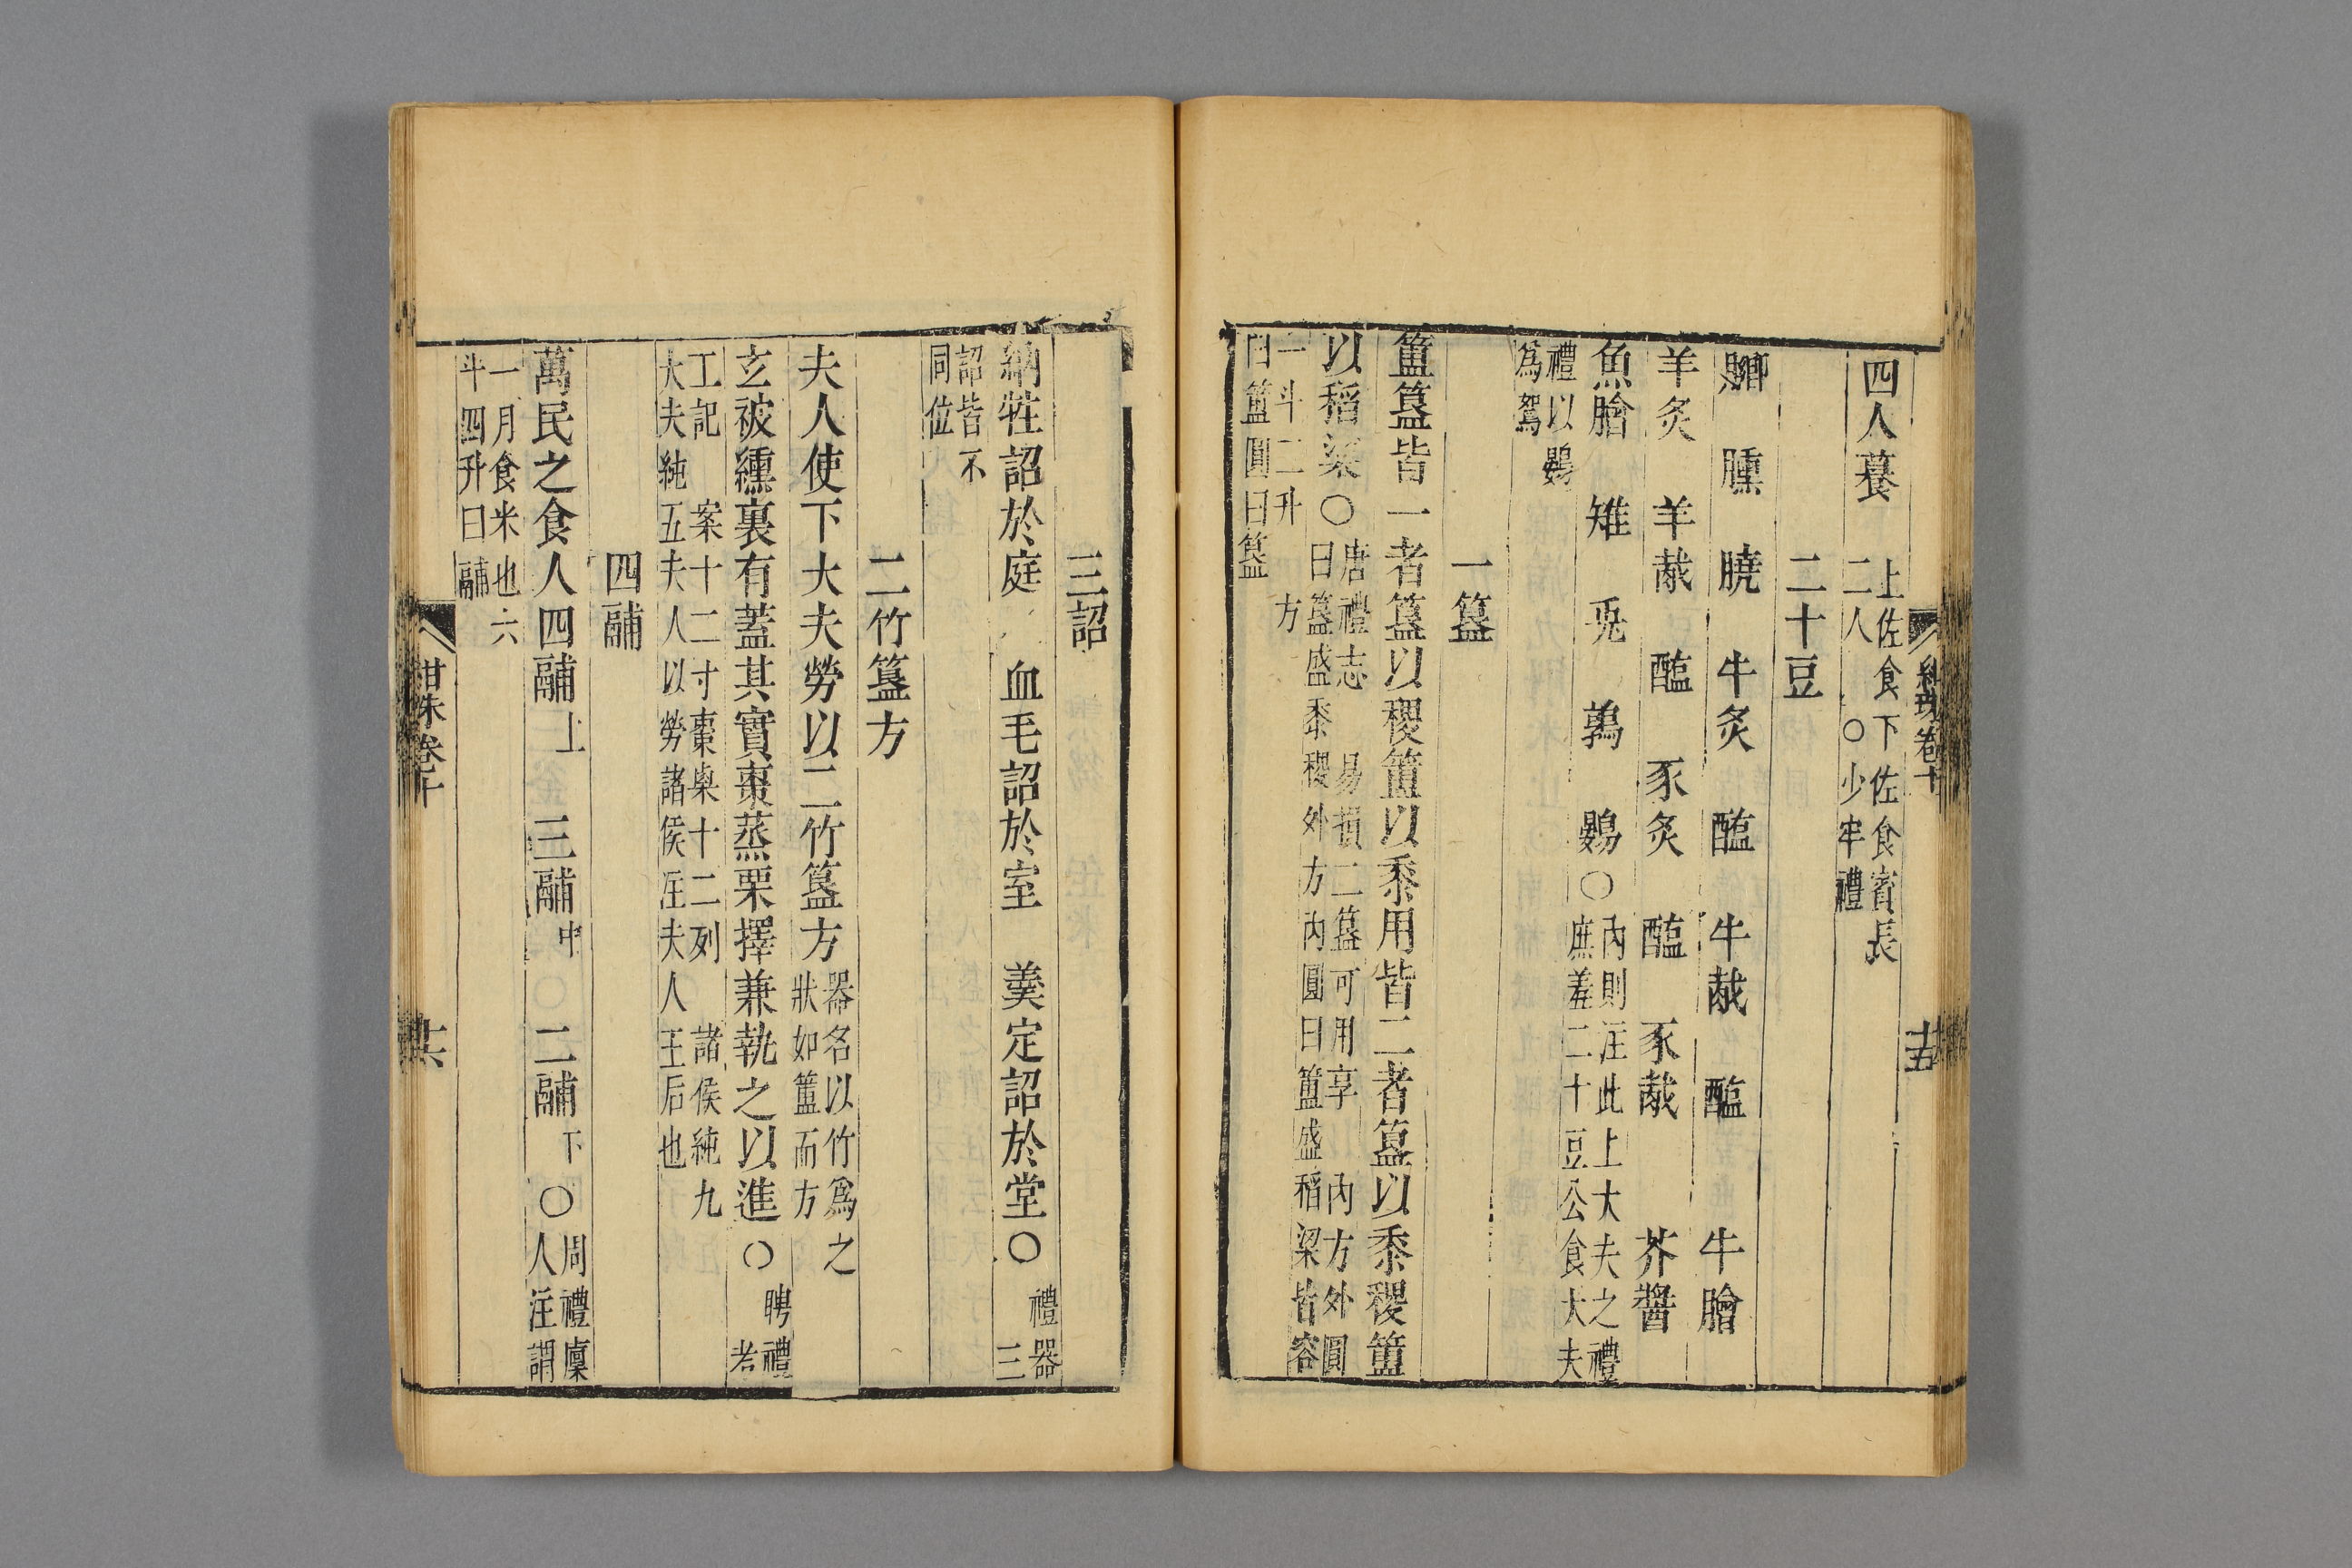 紺珠卷十
十五
四人養 上佐食下佐食賓長
二人 ○少牢禮
二十豆
膷 臐 膮 牛炙 醢 牛胾 醢 牛膾
羊炙 羊胾 醢 豕炙 醢 豕胾 芥醬
魚膾 雉 兎 鶉 鷃○ 內則注此上大夫之禮
庶羞二十豆公食大夫
禮以鷃
爲鴽
一簋
簠簋皆一者簋以稷簠以黍用皆二者簋以黍稷簠
以稻梁○ 唐禮志 易損二簋可用享 內方外圓
曰簋盛黍稷外方內圓曰簠盛稻梁皆容
一斗二升 方
曰簠圓曰簋
三詔
納牲詔於庭 血毛詔於室 羹定詔於堂○ 禮器
三
詔皆不
同位
二竹簋方
夫人使下大夫勞以二竹簋方 器名以竹爲之
狀如簠而方
玄被纁裏有蓋其實棗蒸栗擇兼執之以進○ 聘禮
考
工記 案十二寸棗㮚十二列 諸侯純九
大夫純五夫人以勞諸侯注夫人王后也
四鬴
萬民之食人四鬴上 三鬴中 二鬴下 ○ 周禮廩
人注謂
一月食米也六
斗四升曰鬴
紺珠卷十
十六